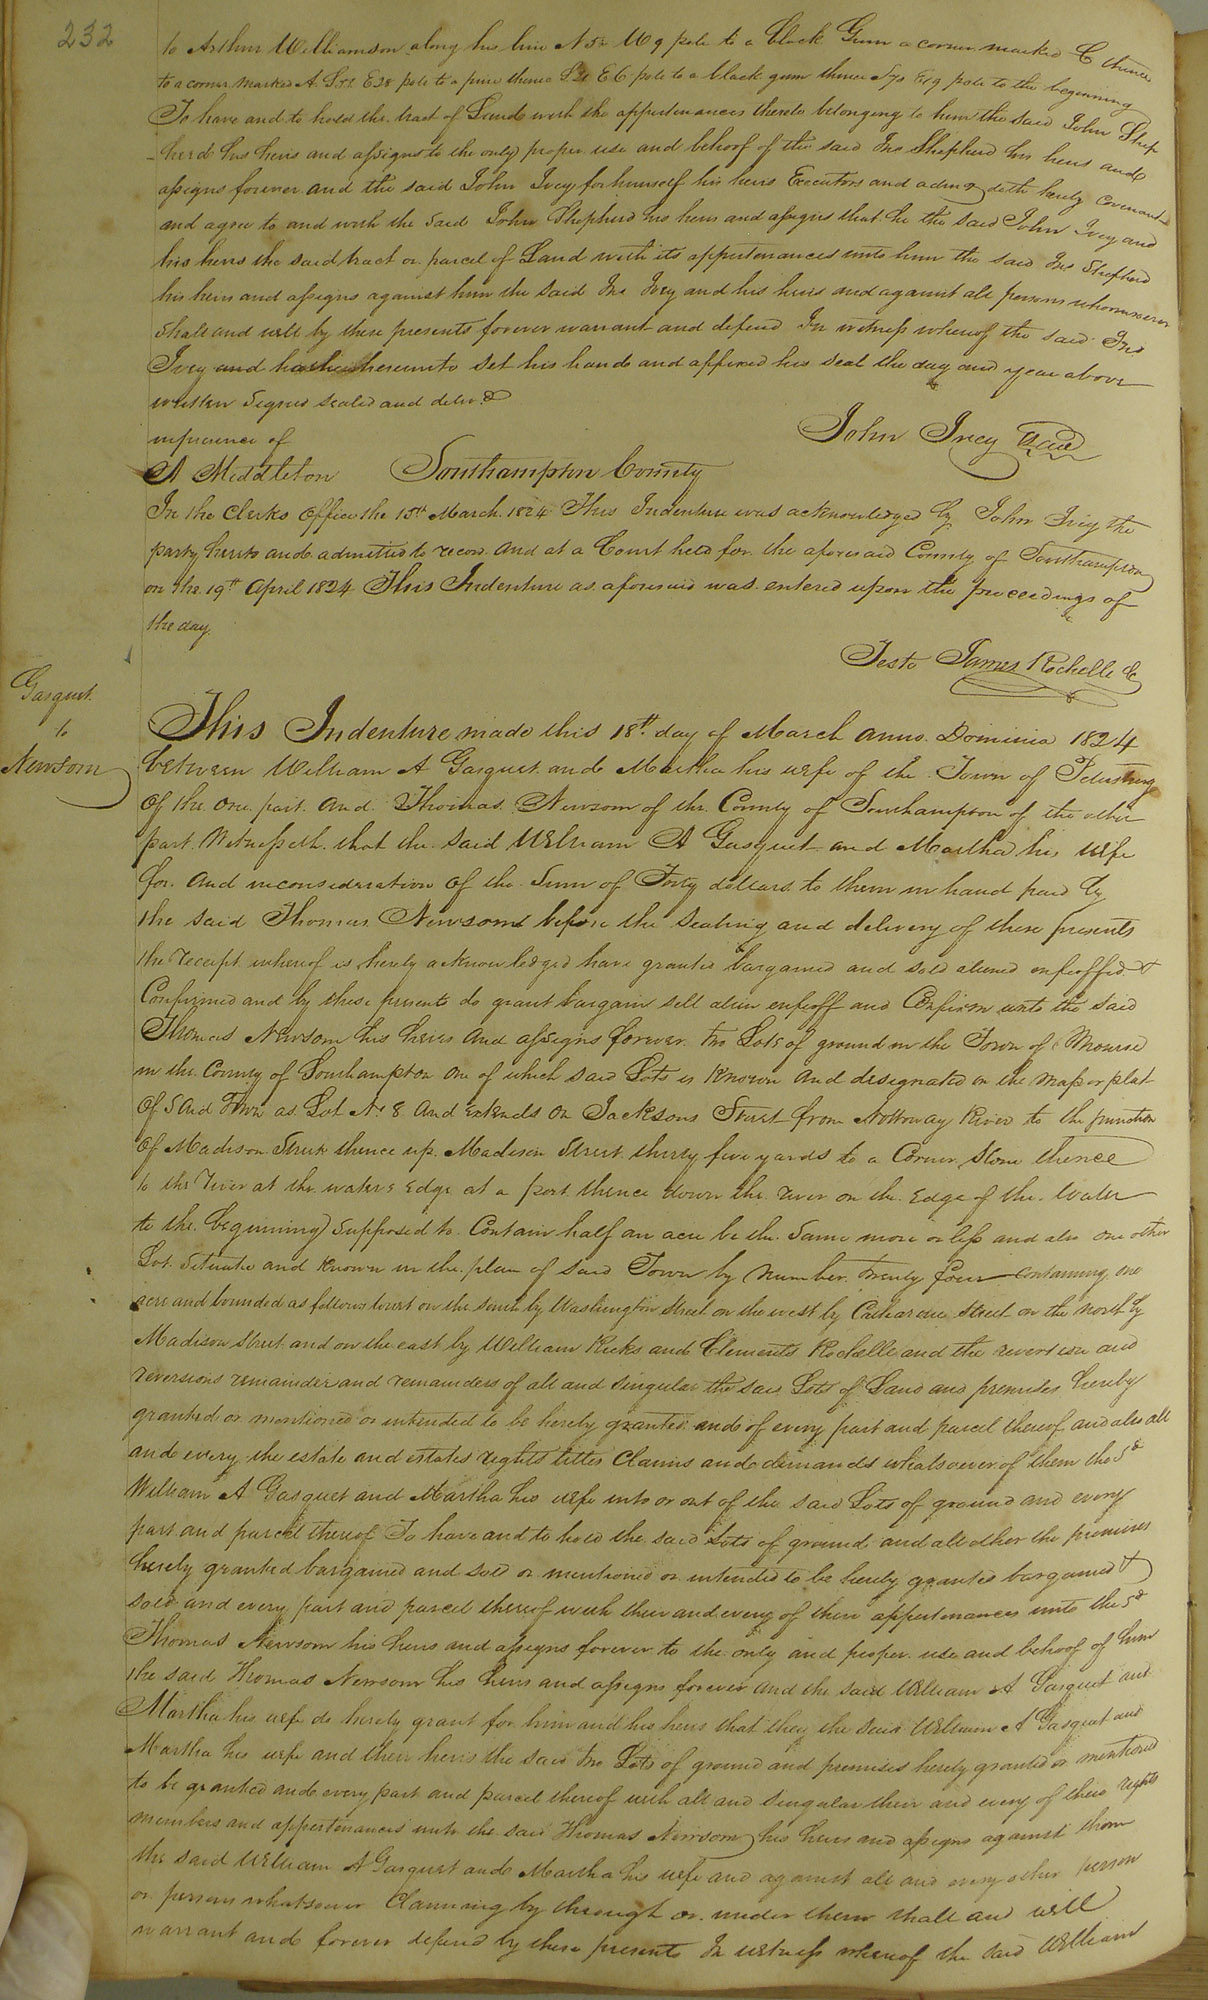 232
to Arthur Williamson along his line N 5 W 9 pole to a black Gum a corner marked C thence
to a corner marked A. E 28 pole to a pine thence E 6 pole to a black gum thence 9 pole to the beginning
To have and to hold the tract of Land with the appertenances thereto belonging to him the said John Shep
-herd his heirs and assigns to the only proper use and behoof of the said Jno Shepherd his heirs and
assigns forever and the said John Ivey for himself his heirs Executors and admrs doth hereby covenant
and agree to and with the said John Shepherd his heirs and assigns that he the said John Ivey and
his heirs the said tract or parcel of Land with its appertenances unto him the said Jno Shepherd
his heirs and assigns against him the said Jno Ivey and his heirs and against all persons whomsoever
shall and will by these presents forever warrant and defend In witness whereof the said Jno
Ivey and hath hereunto set his hand and affixed his seal the day and year above
written Signed sealed and deliv.d
in presence of
John Ivey Seal
A Middleton Southampton County
In the Clerks Office the 15th March 1824 This Indenture was acknowledged by John Ivey the
party hereto and admitted to record. And at a Court held for the aforesaid County of Southampton
on the 19th April 1824 This Indenture as aforesaid was entered upon the proceedings of
the day.
Teste James Rochelle C
Gasquet
to
Newsom
This Indenture made this 18th day of March anno Dominia 1824
between William A Gasquet and Martha his wife of the Town of
Of the One part. And Thomas Newsom of the County of Southampton of the other
part Witnesseth that the said William A Gasquet and Martha his wife
for and in consideration of the Sum of Forty dollars to them in hand paid by
the said Thomas Newsom before the sealing and delivery of these presents
the receipt whereof is hereby acknowledged have granted bargained and sold aliened enfeoffed &
Confirmed and by these presents do grant bargain sell alien enfeoff and Confirm unto the said
Thomas Newsom his heirs and assigns forever two Lots of ground in the Town of Monroe
in the County of Southampton One of which said Lots is Known and designated in the map or plat
Of Said Town as Lot No 8 and extends on Jacksons Street from Nottoway River to the junction
Of Madison Street thence up Madison Street thirty five yards to a Corner Stone thence
to the river at the waters edge at a post thence down the river on the edge of the water
to the beginning supposed to contain half an acre be the same more or less and also one other
Lot situate and Known in the plan of said Town by number twenty four containing one
acre and bounded as follows towit on the south by Washington street on the west by Catharine Street on the north by
Madison street and on the east by William Ricks and Clements Rochelle and the reversion and
reversions remainder and remainders of all and singular the said Lots of Land and premises hereby
granted or mentioned or intended to be hereby granted and of every part and parcel thereof and also all
and every the estate and estates rights titles Claims and demands whatsoever of them the sd
William A Gasquet and Martha his wife into or out of the said Lots of ground and every
part and parcel thereof To have and to hold the said Lots of ground and all other the premises
hereby granted bargained and sold or mentioned or intended to be hereby granted bargained &
sold and every part and parcel thereof with their and every of their appertenances unto the sd
Thomas Newsom his heirs and assigns forever to the only and proper use and behoof of him
the said Thomas Newsom his heirs and assigns forever and the said William A Gasquet and
Martha his wife do hereby grant for him and his heirs that they the said William A Gasquet and
Martha his wife and their heirs the said two Lots of ground and premises hereby granted or mentioned
to be granted and every part and parcel thereof with all and singular their and every of their rights
members and appertenances unto the said Thomas Newsom his heirs and assigns against them
the said William A Gasquet and Martha his wife and against all and every other person
or persons whatsoever Claiming by through or under them shall and will
warrant and forever defend by these presents In witness whereof the said William